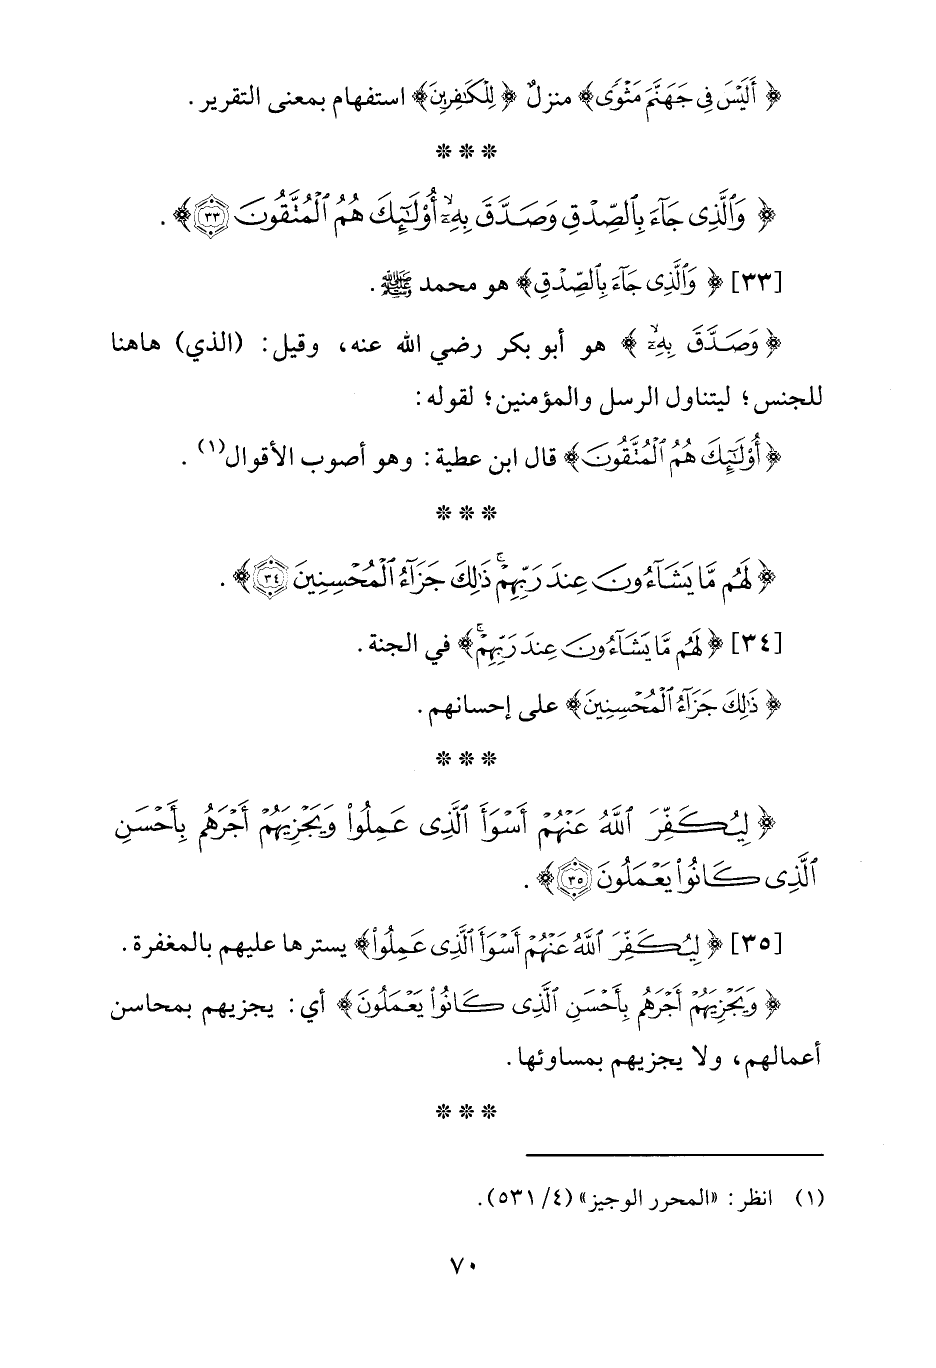 ﴿ أَلَيْسَ فِي جَهَنَّمَ مَثْوًى﴾ منزلٌ ﴿ لِلْكَافِرِينَ﴾ استفهام بمعنى التقرير .
* * *
﴿ وَالَّذِي جَآءَ بِالصِّدْقِ وَصَدَّقَ بِهِۦٓ أُوْلَٰٓئِكَ هُمُ الْمُتَّقُونَ ٣٣﴾ .
[٣٣] ﴿ وَالَّذِي جَآءَ بِالصِّدْقِ﴾ هو محمد ﷺ .
﴿وَصَدَّقَ بِهِۦٓ ﴾ هو أبو بكر رضي الله عنه، وقيل: (الذي) هاهنا
للجنس؛ ليتناول الرسل والمؤمنين؛ لقوله:
﴿أُوْلَٰٓئِكَ هُمُ الْمُتَّقُونَ﴾ قال ابن عطية: وهو أصوب الأقوال(١) .
* * *
﴿ لَهُم مَّا يَشَآءُونَ عِندَ رَبِّهِمْۚ ذَٰلِكَ جَزَآءُ الْمُحْسِنِينَ ٣٤﴾ .
[٣٤] ﴿ لَهُم مَّا يَشَآءُونَ عِندَ رَبِّهِمْۚ﴾ في الجنة .
﴿ ذَٰلِكَ جَزَآءُ الْمُحْسِنِينَ﴾ على إحسانهم .
* * *
﴿ لِيُكَفِّرَ اللَّهُ عَنْهُمْ أَسْوَأَ الَّذِي عَمِلُواْ وَيَجْزِيَهُمْ أَجْرَهُم بِأَحْسَنِ
الَّذِي كَانُواْ يَعْمَلُونَ ٣٥﴾ .
[٣٥] ﴿ لِيُكَفِّرَ اللَّهُ عَنْهُمْ أَسْوَأَ الَّذِي عَمِلُواْ﴾ يسترها عليهم بالمغفرة .
﴿ وَيَجْزِيَهُمْ أَجْرَهُم بِأَحْسَنِ الَّذِي كَانُواْ يَعْمَلُونَ﴾ أي: يجزيهم بمحاسن
أعمالهم، ولا يجزيهم بمساوئها .
* * *
(١) انظر: «المحرر الوجيز» (٤/ ٥٣١).
٧٠